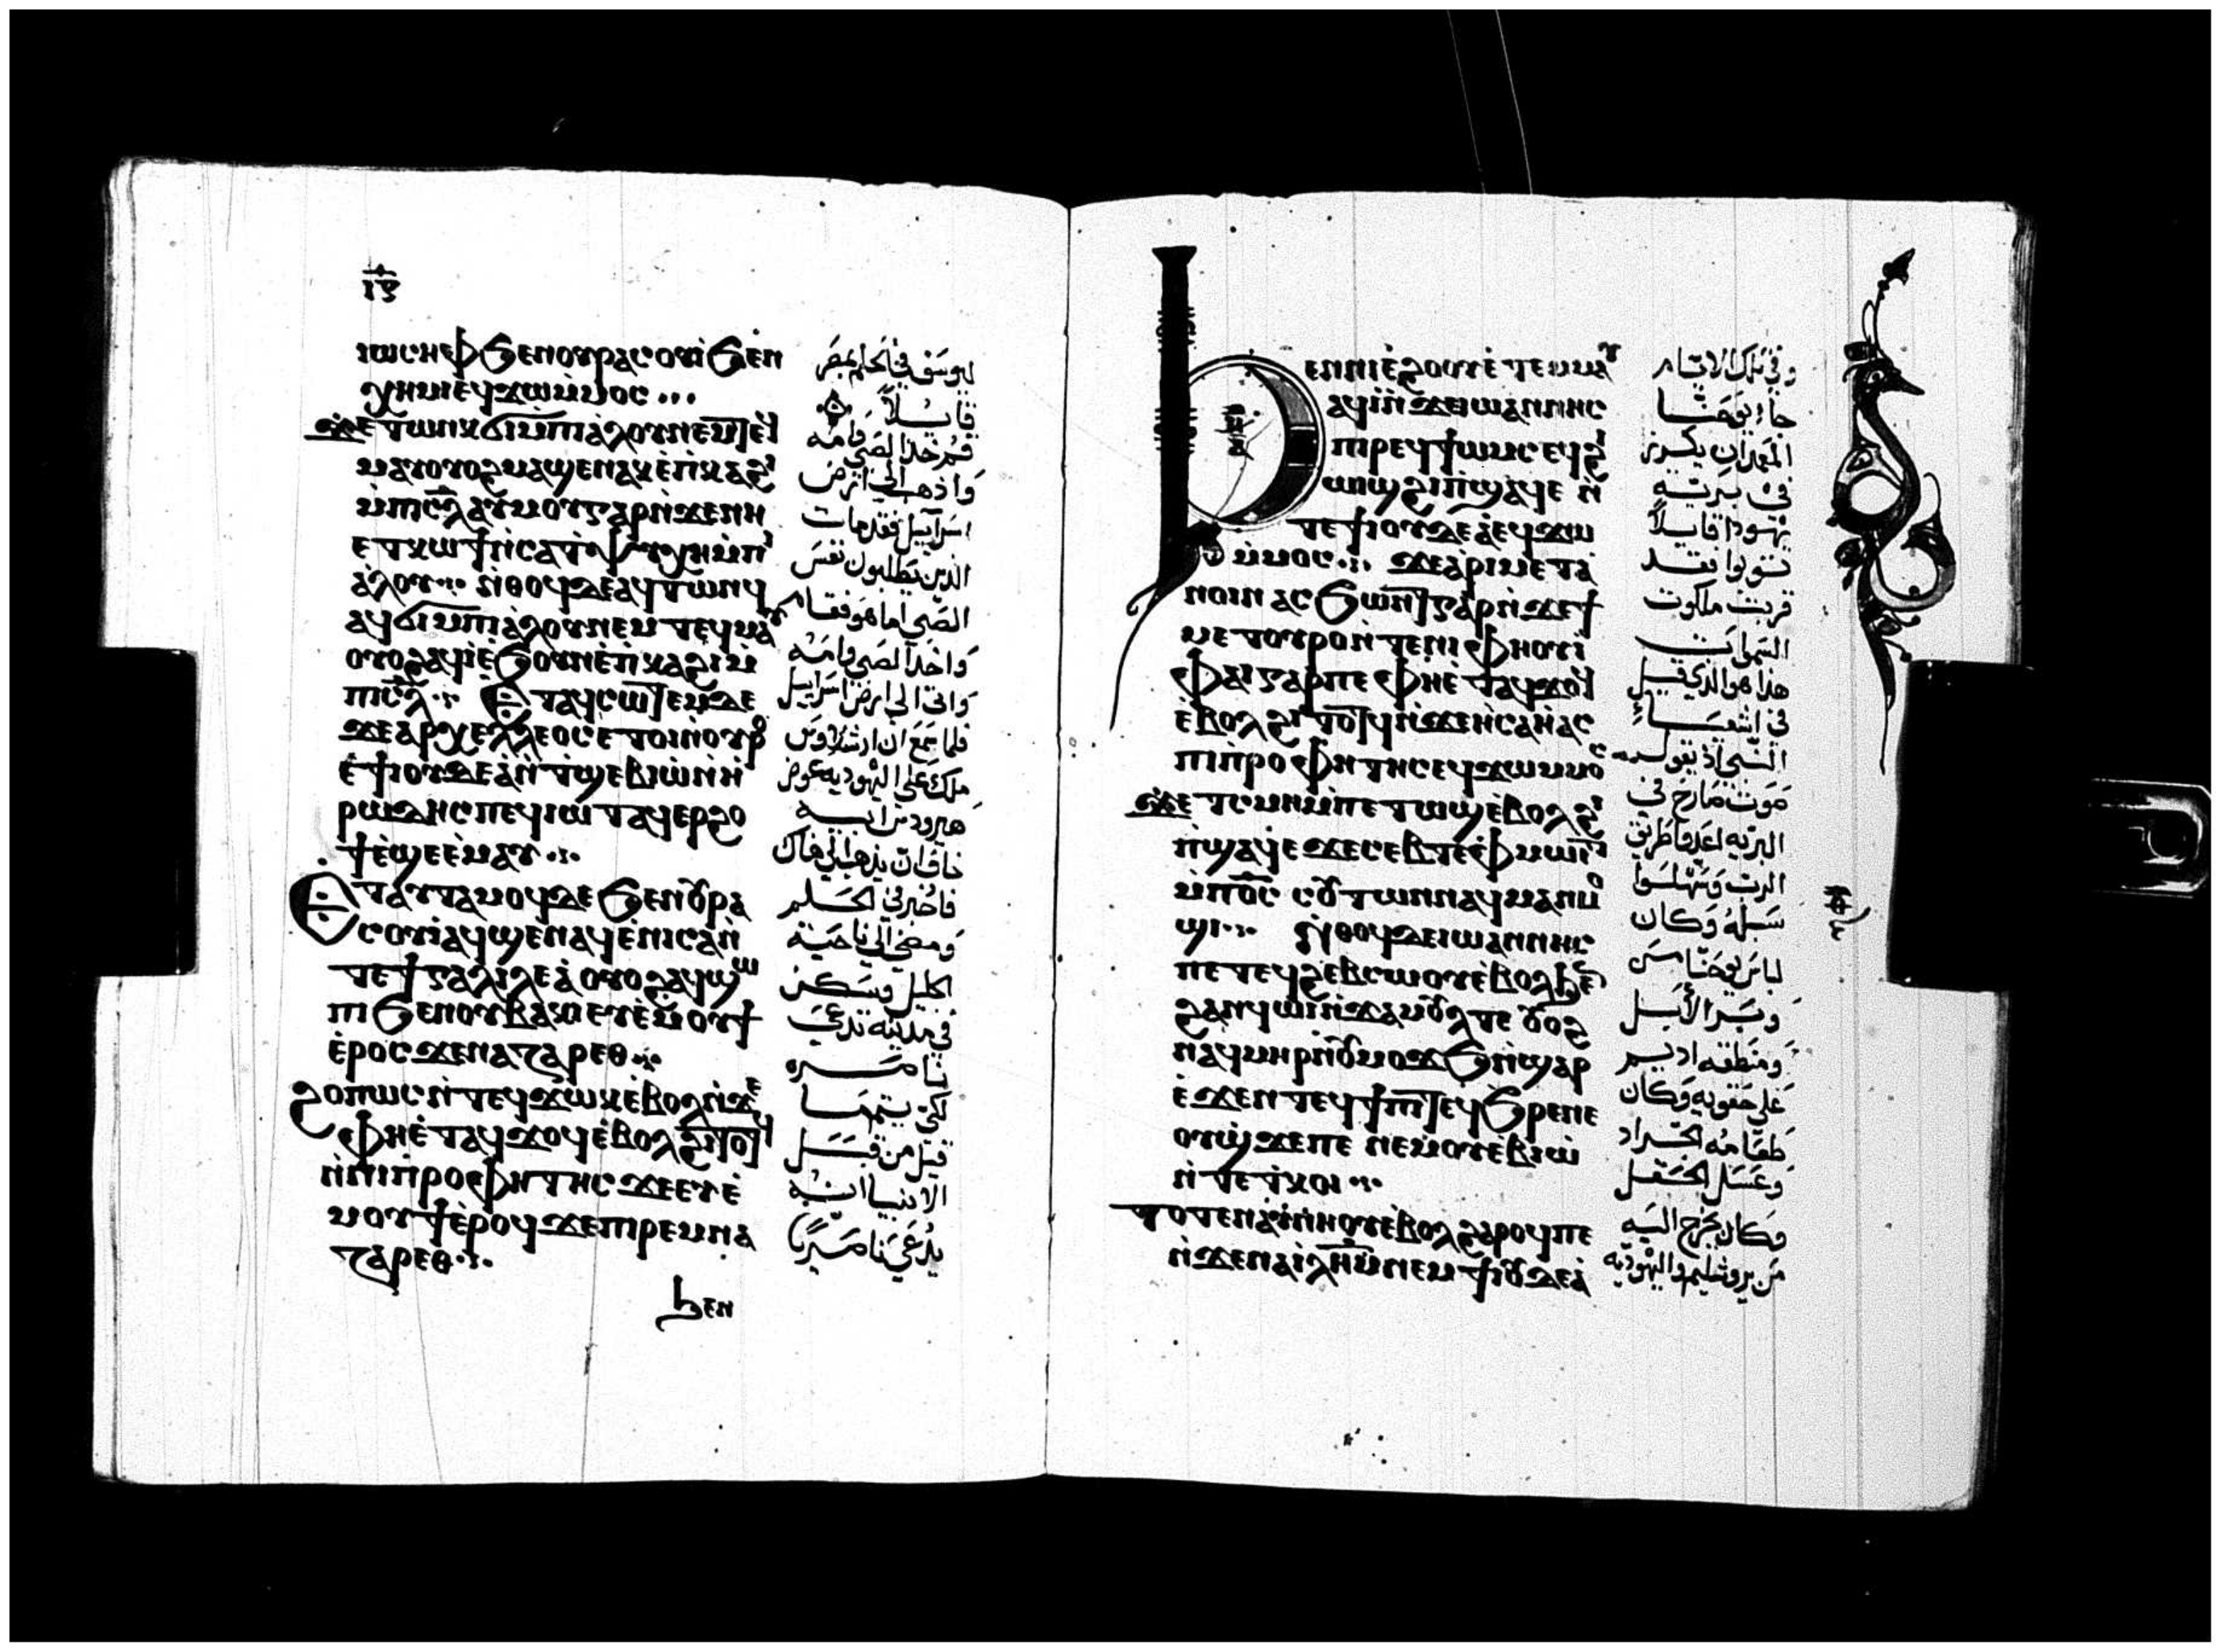 ⲓⲋ
ⲓⲱⲥⲏⲫ ϧⲉⲛ ⲟⲩⲣⲁⲥⲟⲩⲓ̀ ϧⲉⲛ
ⲭⲏⲙⲓ ⲉϥϫⲱ ⲙ̀ⲙⲟⲥ
ϫⲉ ⲧⲱⲛⲕ ϭⲓ ⲙ̀ⲡⲓⲁ̀ⲗⲟⲩ ⲛⲉⲙ ⲧⲉϥ
ⲙⲁⲩ ⲟⲩⲟϩ ⲙⲁϣⲉⲛⲁⲕ ⲉ̀ⲡ̀ⲕⲁϩⲓ
ⲙ̀ⲡⲓⲥ̅ⲗ̅ ⲁⲩⲙⲟⲩ ⲅⲁⲣ ⲛ̀ϫⲉ ⲛⲏ
ⲉⲧⲕⲱϯ ⲛ̀ⲥⲁ ⲧ̀ⲯⲩⲭⲏ ⲙ̀ⲡⲓ
ⲁ̀ⲗⲟⲩ ⲛ̀ⲑⲟϥ ⲇⲉ ⲁϥⲧⲱⲛϥ
ⲁϥϭⲓ ⲙ̀ⲡⲓⲁ̀ⲗⲟⲩ ⲛⲉⲙ ⲧⲉϥⲙⲁⲩ
ⲟⲩⲟϩ ⲁϥⲓ̀ ⲉ̀ϧⲟⲩⲛ ⲉ̀ⲡ̀ⲕⲁϩⲓ ⲙ̀
ⲡⲓⲥ̅ⲗ̅ ⲉⲧⲁϥⲥⲱⲧⲉⲙ ⲇⲉ
ϫⲉ ⲁⲣⲭⲉⲗⲗⲉⲟⲥ ⲉⲧⲟⲓ ⲛ̀ⲟⲩⲣⲟ
ⲉ̀ϯⲓⲟⲩⲇⲉⲁ̀ ⲛ̀ⲧ̀ϣⲉⲃⲓⲱ̀ ⲛ̀ⲏ̀
ⲣⲱⲇⲏⲥ ⲡⲉϥⲓⲱⲧ ⲁϥⲉⲣϩⲟ
ϯ ⲉ̀ϣⲉ ⲉ̀ⲙⲁⲩ
ⲉⲧⲁⲩⲧⲁⲙⲟϥ ⲇⲉ ϧⲉⲛ ⲟⲩⲣⲁ
ⲥⲟⲩⲓ̀ ⲁϥϣⲉⲛⲁϥ ⲉ̀ⲛⲓⲥⲁ ⲛ̀
ⲧⲉ ϯⲅⲁⲗⲓⲗⲉⲁ̀ ⲟⲩⲟϩ ⲁϥϣⲱ
ⲡⲓ ϧⲉⲛ ⲟⲩⲃⲁⲕⲓ ⲉⲩⲉ̀ⲙⲟⲩϯ
ⲉ̀ⲣⲟⲥ ϫⲉ ⲛⲁⲍⲁⲣⲉⲑ
ϩⲟⲡⲱⲥ ⲛ̀ⲧⲉϥϫⲱⲕ ⲉ̀ⲃⲟⲗ ⲛ̀ϫⲉ
ⲫⲏ ⲉ̀ⲧⲁϥϫⲟϥ ⲉ̀ⲃⲟⲗ ϩⲓⲧⲟⲧⲟⲩ
ⲛ̀ⲛⲓⲡ̀ⲣⲟⲫⲏⲧⲏⲥ ϫⲉ ⲉⲩⲉ̀
ⲙⲟⲩϯ ⲉ̀ⲣⲟϥ ϫⲉ ⲡⲓⲣⲉⲙⲛⲁ
ⲍⲁⲣⲉⲑ
ϧⲉⲛ
ليوسف في الحلم بمصر
قايلاً
قم خذ الصبي وامه
واذهب الي ارض
اسراييل فقد مات
الذين يطلبون نفس
الصبي اما هو فقام
واخذ الصبي وامه
واتي الي ارض اسراييل
فلما سمع ان ارشلاوس
ملك علي اليهوديه عوض
هيرودس ابيه
خاف ان يذهب الي هناك
فاخبر في الحلم
ومضي الي ناحية
الجليل وسكن
في مدينة تدعي
ناصره
لكي يتم ما
قيل من قبل
الانبيا انه
يدعي ناصريا
ϧⲉⲛ ⲛⲓⲉ̀ϩⲟⲟⲩ ⲉ̀ⲧⲉⲙⲙⲁⲩ
ⲁϥⲓ̀ ⲛ̀ϫⲉ ⲓⲱⲁⲛⲛⲏⲥ
ⲡⲓⲣⲉϥϯⲱⲙⲥ ⲉϥϩⲓ
ⲱⲓϣ ϩⲓ ⲡ̀ϣⲁϥⲉ ⲛ̀
ⲧⲉ ϯⲓⲟⲩⲇⲉⲁ̀ ⲉϥϫⲱ
ⲙ̀ⲙⲟⲥ ϫⲉ ⲁ̀ⲣⲓⲙⲉⲧⲁ
ⲛⲟⲓⲛ ⲁⲥϧⲱⲛⲧ ⲅⲁⲣ ⲛ̀ϫⲉ ϯ
ⲙⲉⲧⲟⲩⲣⲟ ⲛ̀ⲧⲉ ⲛⲓⲫⲏⲟⲩⲓ̀
ⲫⲁⲓ ⲅⲁⲣ ⲡⲉ ⲫⲏ ⲉ̀ⲧⲁϥϫⲟϥ
ⲉ̀ⲃⲟⲗ ϩⲓⲧⲟⲧϥ ⲛ̀ϫⲉ ⲏ̀ⲥⲁⲏ̀ⲁⲥ
ⲡⲓⲡ̀ⲣⲟⲫⲏⲧⲏⲥ ⲉϥϫⲱ ⲙⲙⲟⲥ
ϫⲉ ⲧ̀ⲥⲙⲏ ⲙ̀ⲡⲉⲧⲱϣ ⲉ̀ⲃⲟⲗ ϩⲓ
ⲡ̀ϣⲁϥⲉ ϫⲉ ⲥⲉⲃⲧⲉ ⲫ̀ⲙⲱⲓⲧ
ⲙ̀ⲡⲟ̅ⲥ̅ ⲥⲟⲩⲧⲱⲛ ⲛⲁϥⲙⲁⲛⲙⲟ
ϣⲓ ⲛ̀ⲑⲟϥ ⲇⲉ ⲓⲱⲁⲛⲛⲏⲥ
ⲛⲉ ⲧⲉϥϩⲉⲃⲥⲱ ⲟⲩⲉ̀ⲃⲟⲗ ϧⲉⲛ
ϩⲁⲛϥⲱⲓ ⲛ̀ϫⲁⲙⲟⲩⲗ ⲧⲉ ⲟⲩⲟϩ
ⲛⲁϥⲙⲏⲣ ⲛ̀ⲟⲩⲙⲟϫϧ ⲛ̀ϣⲁⲣ
ⲉ̀ϫⲉⲛ ⲧⲉϥϯⲡⲓ ⲧⲉϥϧⲣⲉ ⲛⲉ
ⲟⲩϣ̀ϫⲉ ⲡⲉ ⲛⲉⲙ ⲟⲩⲉ̀ⲃⲓⲱ̀
ⲛ̀ⲧⲉ ⲧ̀ⲕⲟⲓ
ⲧⲟⲧⲉ ⲛⲁⲩⲛ̀ⲛⲏⲟⲩ ⲉ̀ⲃⲟⲗ ϩⲁⲣⲟϥ ⲡⲉ
ⲛ̀ϫⲉ ⲛⲁ ⲓ̅ⲗ̅ⲏ̅ⲙ̅ ⲛⲉⲙ ϯⲓⲟⲩⲇⲉⲁ̀
وفي تلك الايام
جا يوحنا
المعمدان يكرز
في برية
يهودا قايلاً
توبوا فقد
قربت ملكوت
السموات
هذا هو الذي قيل
في اشعيا
النبي اذ يقول
صوت صارخ في
البريه اعدوا طريق
الرب وسهلوا
سبله وكان
لباس يوحنا من
وبر الابل
ومنطقه اديم
علي حقويه وكان
طعامه الجراد
وعسل الحقل
وكان يخرج اليه
من يروشليم واليهوديه